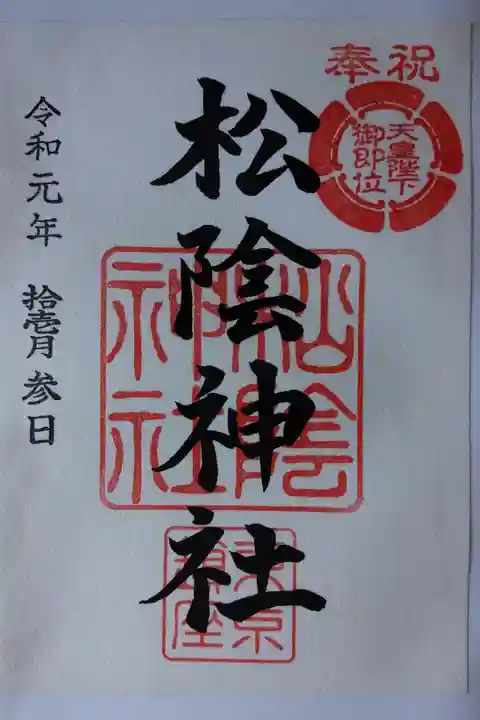 奉祝
天皇陛下
御即位
松陰神社
松陰
神社
東京
鎮座
令和元年 拾壱月参日